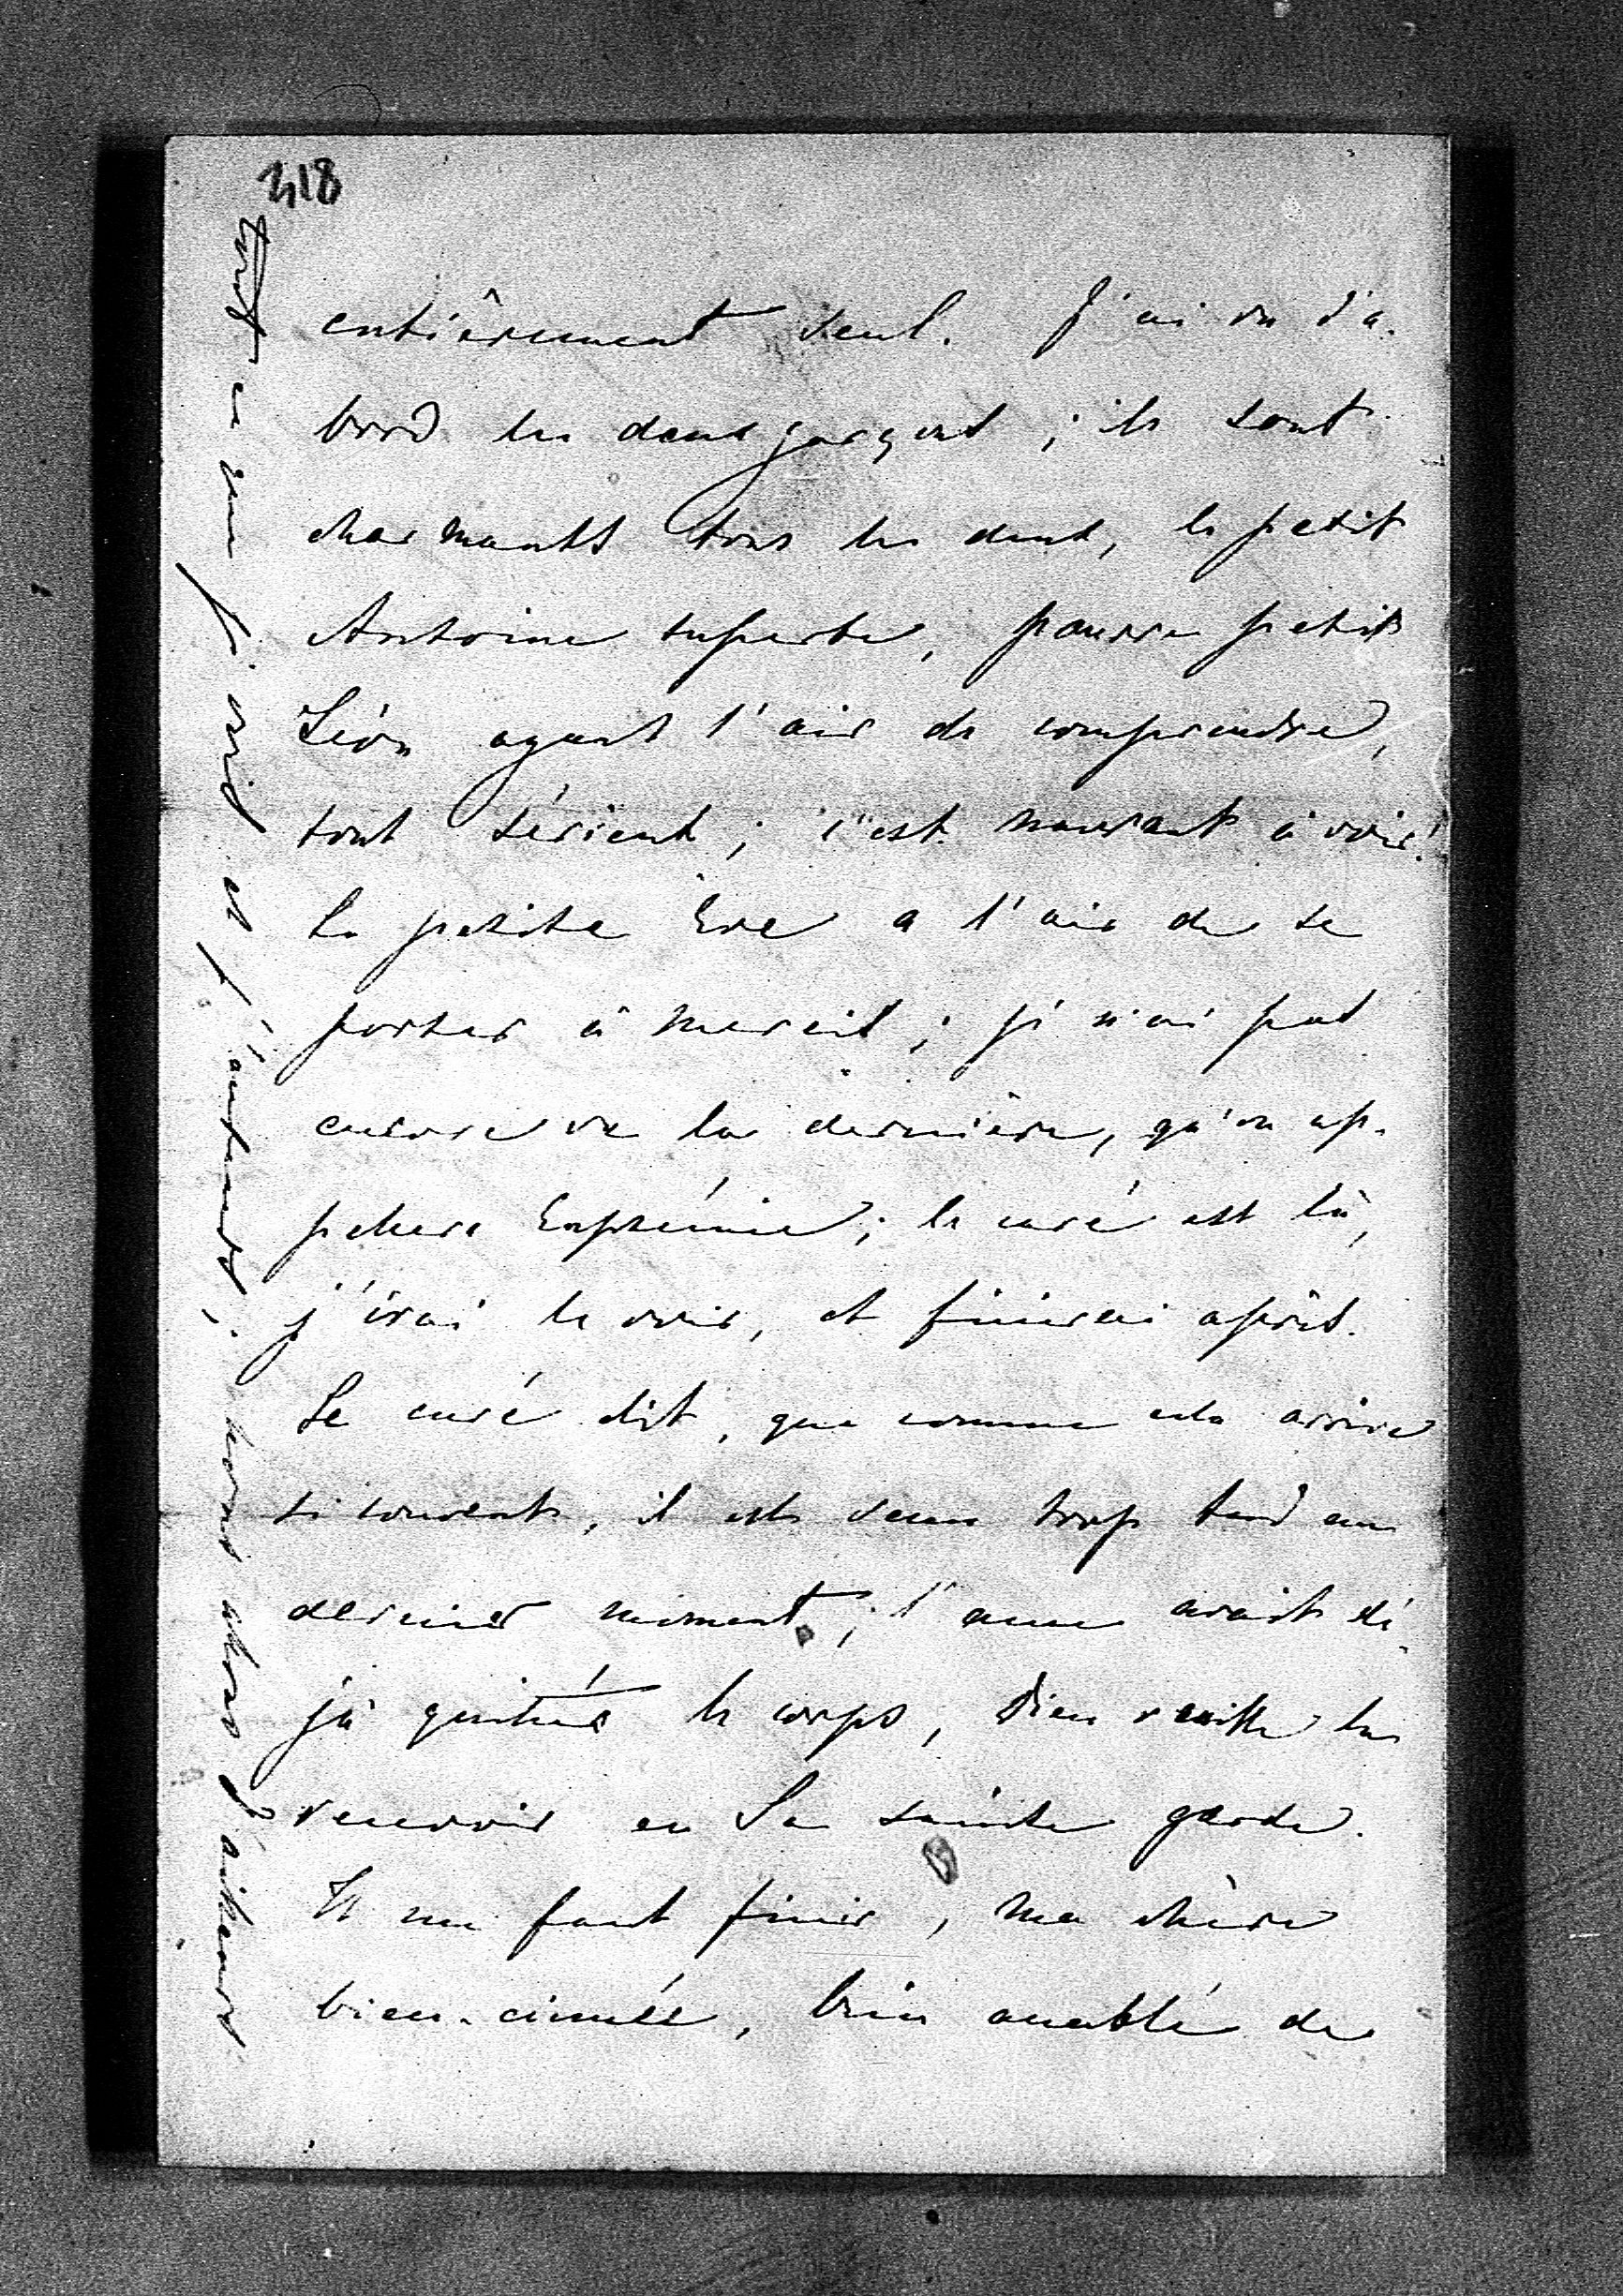 318
entièrement seul. J'ai vu d'a-
bord les deux garçons ; ils sont
charmants tous les deux, le petit
Antoine superbe, pauvre petit
Léon ayant l'air de comprendre,
tout sérieux ; c'est navrant à voir!
La petite Eve a l'air de se
porter à merveil ; je n'ai pas
encore vu la dernière, qu'on ap-
pelera Euphémie ; le curé est là,
j'irai le voir, et finirai après.
Le curé dit, que comme cela arrive
si souvent, il est venu trop tard au
dernier moment ; l'ame avait dé-
jà quittée le corps, Dieu veuille la
recevoir en Sa sainte garde.
Il me faut finir, ma chère
bien-aimée, bien accablé de
tout ce que je vois et j'entends ;